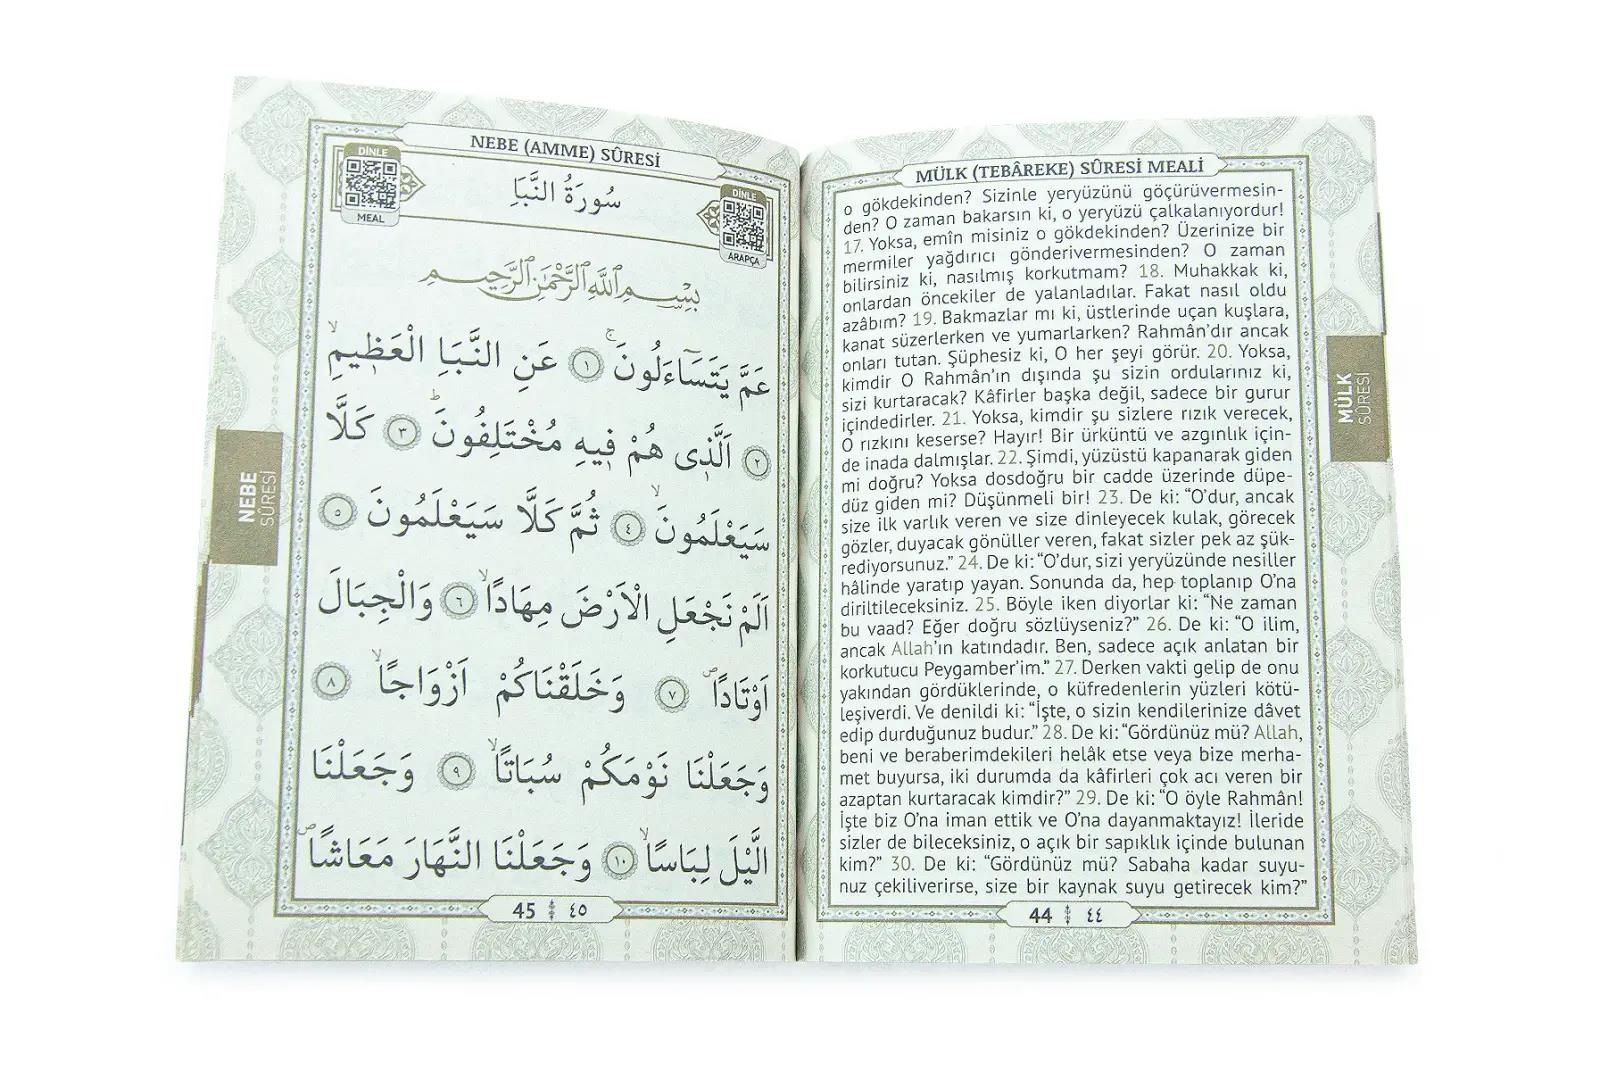 MÜLK (TEBÂREKE) SÛRESİ MEALİ
o gökdekinden? Sizinle yeryüzünü göçürüvermesin-
den? O zaman bakarsın ki, o yeryüzü çalkalanıyordur!
17. Yoksa, emîn misiniz o gökdekinden? Üzerinize bir
mermiler yağdırıcı gönderivermesinden? O zaman
bilirsiniz ki, nasılmış korkutmam? 18. Muhakkak ki,
onlardan öncekiler de yalanladılar. Fakat nasıl oldu
azâbım? 19. Bakmazlar mı ki, üstlerinde uçan kuşlara,
kanat süzerlerken ve yumarlarken? Rahmân’dır ancak
onları tutan. Şüphesiz ki, O her şeyi görür. 20. Yoksa,
kimdir O Rahmân’ın dışında şu sizin ordularınız ki,
sizi kurtaracak? Kâfirler başka değil, sadece bir gurur
içindedirler. 21. Yoksa, kimdir şu sizlere rızık verecek,
O rızkını keserse? Hayır! Bir ürküntü ve azgınlık için-
de inada dalmışlar. 22. Şimdi, yüzüstü kapanarak giden
mi doğru? Yoksa dosdoğru bir cadde üzerinde düpe-
düz giden mi? Düşünmeli bir! 23. De ki: “O’dur, ancak
size ilk varlık veren ve size dinleyecek kulak, görecek
gözler, duyacak gönüller veren, fakat sizler pek az şük-
rediyorsunuz.” 24. De ki: “O’dur, sizi yeryüzünde nesiller
hâlinde yaratıp yayan. Sonunda da, hep toplanıp O’na
diriltileceksiniz. 25. Böyle iken diyorlar ki: “Ne zaman
bu vaad? Eğer doğru sözlüyseniz?” 26. De ki: “O ilim,
ancak Allah’ın katındadır. Ben, sadece açık anlatan bir
korkutucu Peygamber’im.” 27. Derken vakti gelip de onu
yakından gördüklerinde, o küfredenlerin yüzleri kötü-
leşiverdi. Ve denildi ki: “İşte, o sizin kendilerinize dâvet
edip durduğunuz budur.” 28. De ki: “Gördünüz mü? Allah,
beni ve beraberimdekileri helâk etse veya bize merha-
met buyursa, iki durumda da kâfirleri çok acı veren bir
azaptan kurtaracak kimdir?” 29. De ki: “O öyle Rahmân!
İşte biz O’na iman ettik ve O’na dayanmaktayız! İleride
sizler de bileceksiniz, o açık bir sapıklık içinde bulunan
kim?” 30. De ki: “Gördünüz mü? Sabaha kadar suyu-
nuz çekiliverirse, size bir kaynak suyu getirecek kim?”
44 ٤٤
MÜLK
SÛRESİ
NEBE (AMME) SÛRESİ
DİNLE
MEAL
سُورَةُ النَّبَأِ
DİNLE
ARAPÇA
بِسْمِ اللَّهِ الرَّحْمٰنِ الرَّحِيمِ
عَمَّ يَتَسَٓاءَلُونَۚ ١ عَنِ النَّبَأِ الْعَظ۪يمِۙ
٢ اَلَّذ۪ى هُمْ ف۪يهِ مُخْتَلِفُونَۜ ٣ كَلَّا
سَيَعْلَمُونَۙ ٤ ثُمَّ كَلَّا سَيَعْلَمُونَ ٥
اَلَمْ نَجْعَلِ الْاَرْضَ مِهَادًاۙ ٦ وَالْجِبَالَ
اَوْتَادًاۖ ٧ وَخَلَقْنَاكُمْ اَزْوَاجًاۙ ٨
وَجَعَلْنَا نَوْمَكُمْ سُبَاتًاۙ ٩ وَجَعَلْنَا
الَّيْلَ لِبَاسًاۙ ١٠ وَجَعَلْنَا النَّهَارَ مَعَاشًاۖ
45 ٤٥
NEBE
SÛRESİ